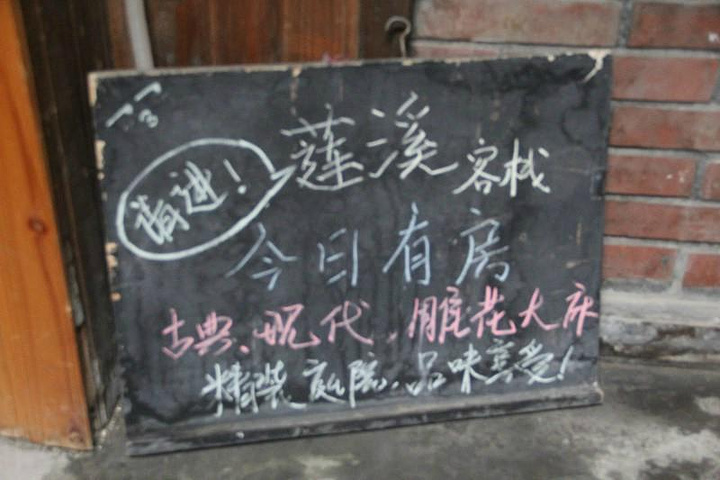 请进!
莲溪客栈
今日有房
古典、现代、雕花大床
精装庭院、品味享受!